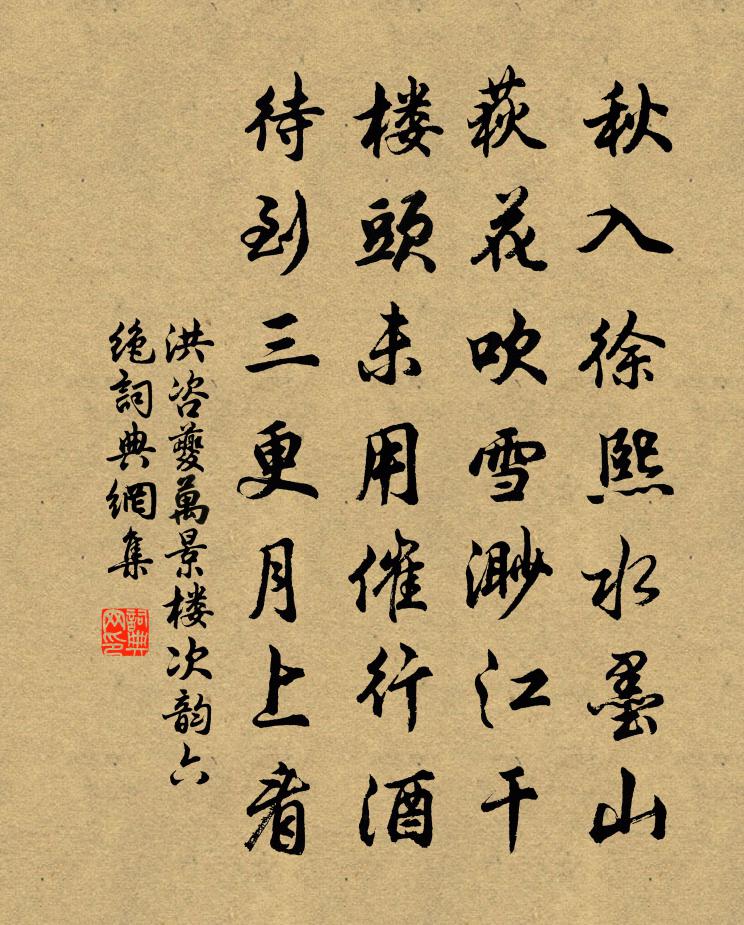 秋入徐熙水墨山
荻花吹雪渺江干
楼頭未用催行酒
待到三更月上看
洪咨夔萬景楼次韵六
絶詞典網集
詞典网印